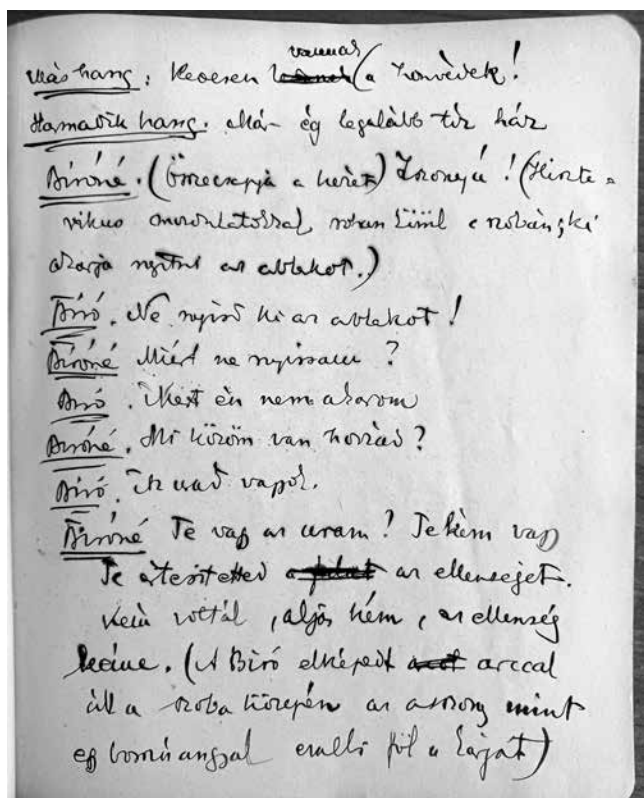 Más hang: Kevesen vannak a honvédek!
Harmadik hang. Már ég legalább tíz ház
Biróné. (Összecsapja a kezét) Iszonyú! (Hiszte-
rikus mozdulatokkal rohan körül a szobán, ki
akarja nyitni az ablakot.)
Biró. Ne nyisd ki az ablakot!
Biróné Miért ne nyissam?
Biró. Mert én nem akarom
Biróné. Mi közöm van hozzád?
Biró. Az urad vagyok.
Biróné Te vagy az uram? Te kém vagy
Te az ellenséget.
Kém voltál, aljas kém, az ellenség
kéme. (A Biró elképedt arccal
áll a szoba közepén az asszony mint
egy bosszúangyal föl a karját)